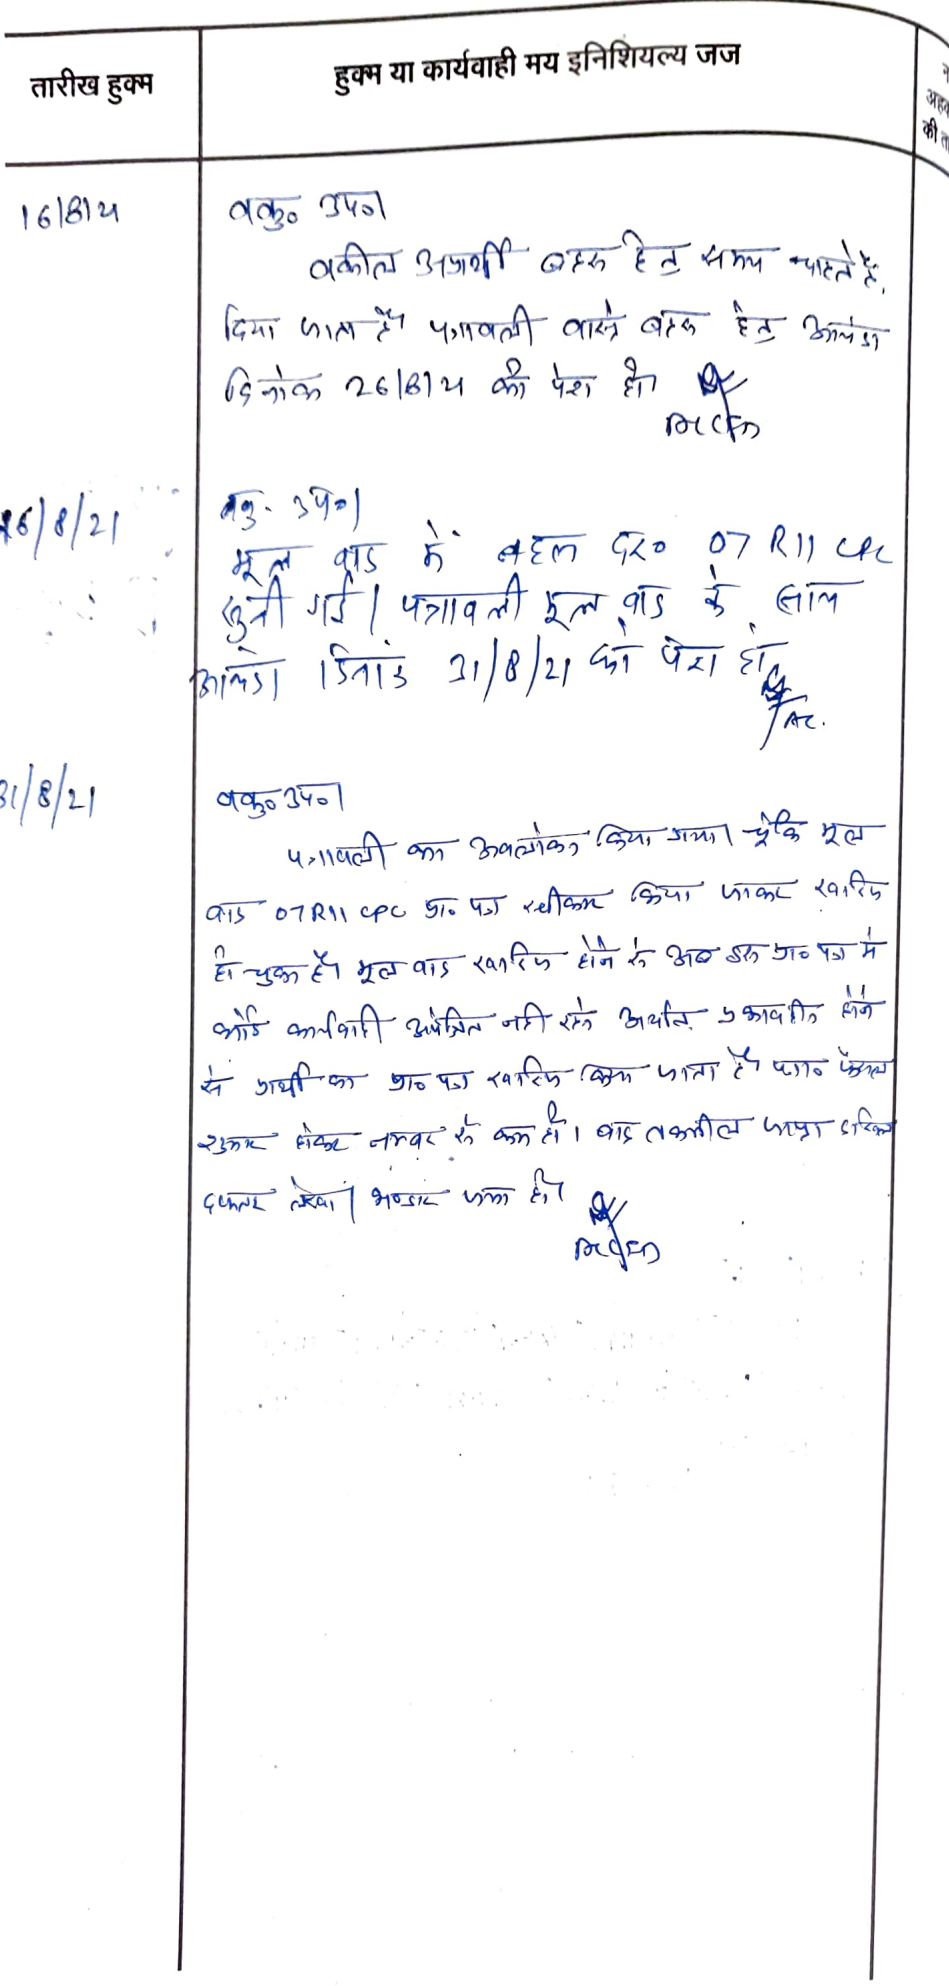 तारीख हुक्म
हुक्म या कार्यवाही मय इनिशियल्य जज
अहव
की ता
16/8/21
वकु० उप०।
वकील अप्रार्थी बहस हेतु समय चाहते है,
दिया जाता है। पत्रावली वास्ते बहस हेतु आयंदा
दिनांक 26/8/21 को पेश हो।
26/8/21
वकु. उप०।
मूल वाद में बहस दर० 07 R11 CPC
सुनी गई। पत्रावली मूल वाद के साथ
आयंदा दिनांक 31/8/21 को पेश हो,
31/8/21
वकु० उप०।
पत्रावली का अवलोकन किया गया। चूंकि मूल
वाद 07 R11 CPC प्रा० पत्र स्वीकार किया जाकर खारिज
हो चुका है। मूल वाद खारिज होने से अब इस प्रा० पत्र मे
कोई कार्यवाही अपेक्षित नही रहने अर्थात होने
से प्रार्थी का प्रा० पत्र खारिज किया जाता है। पत्रा० फैसल
शुमार होकर नम्बर से कम हो। बाद तकमील जाप्ता दाखिल
दफ्तर लेखा भण्डार जमा हो।